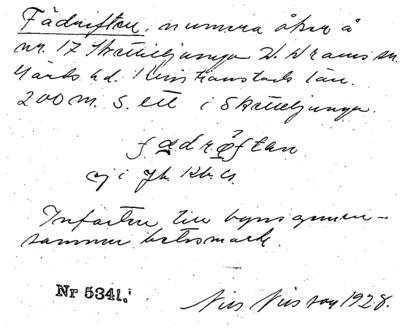 Fädriften, numera åker å
nr. 17 Skättiljunga V. Wrams sn.
Gärds hd. Kristianstads län.
200 m. S. ett i Skättiljunga.
fædrǿftan
ej i Jb. Kb. U.
Infarten till byns gemen-
samma betesmark.
Nr 5341.
Nils Nilsson 1928.